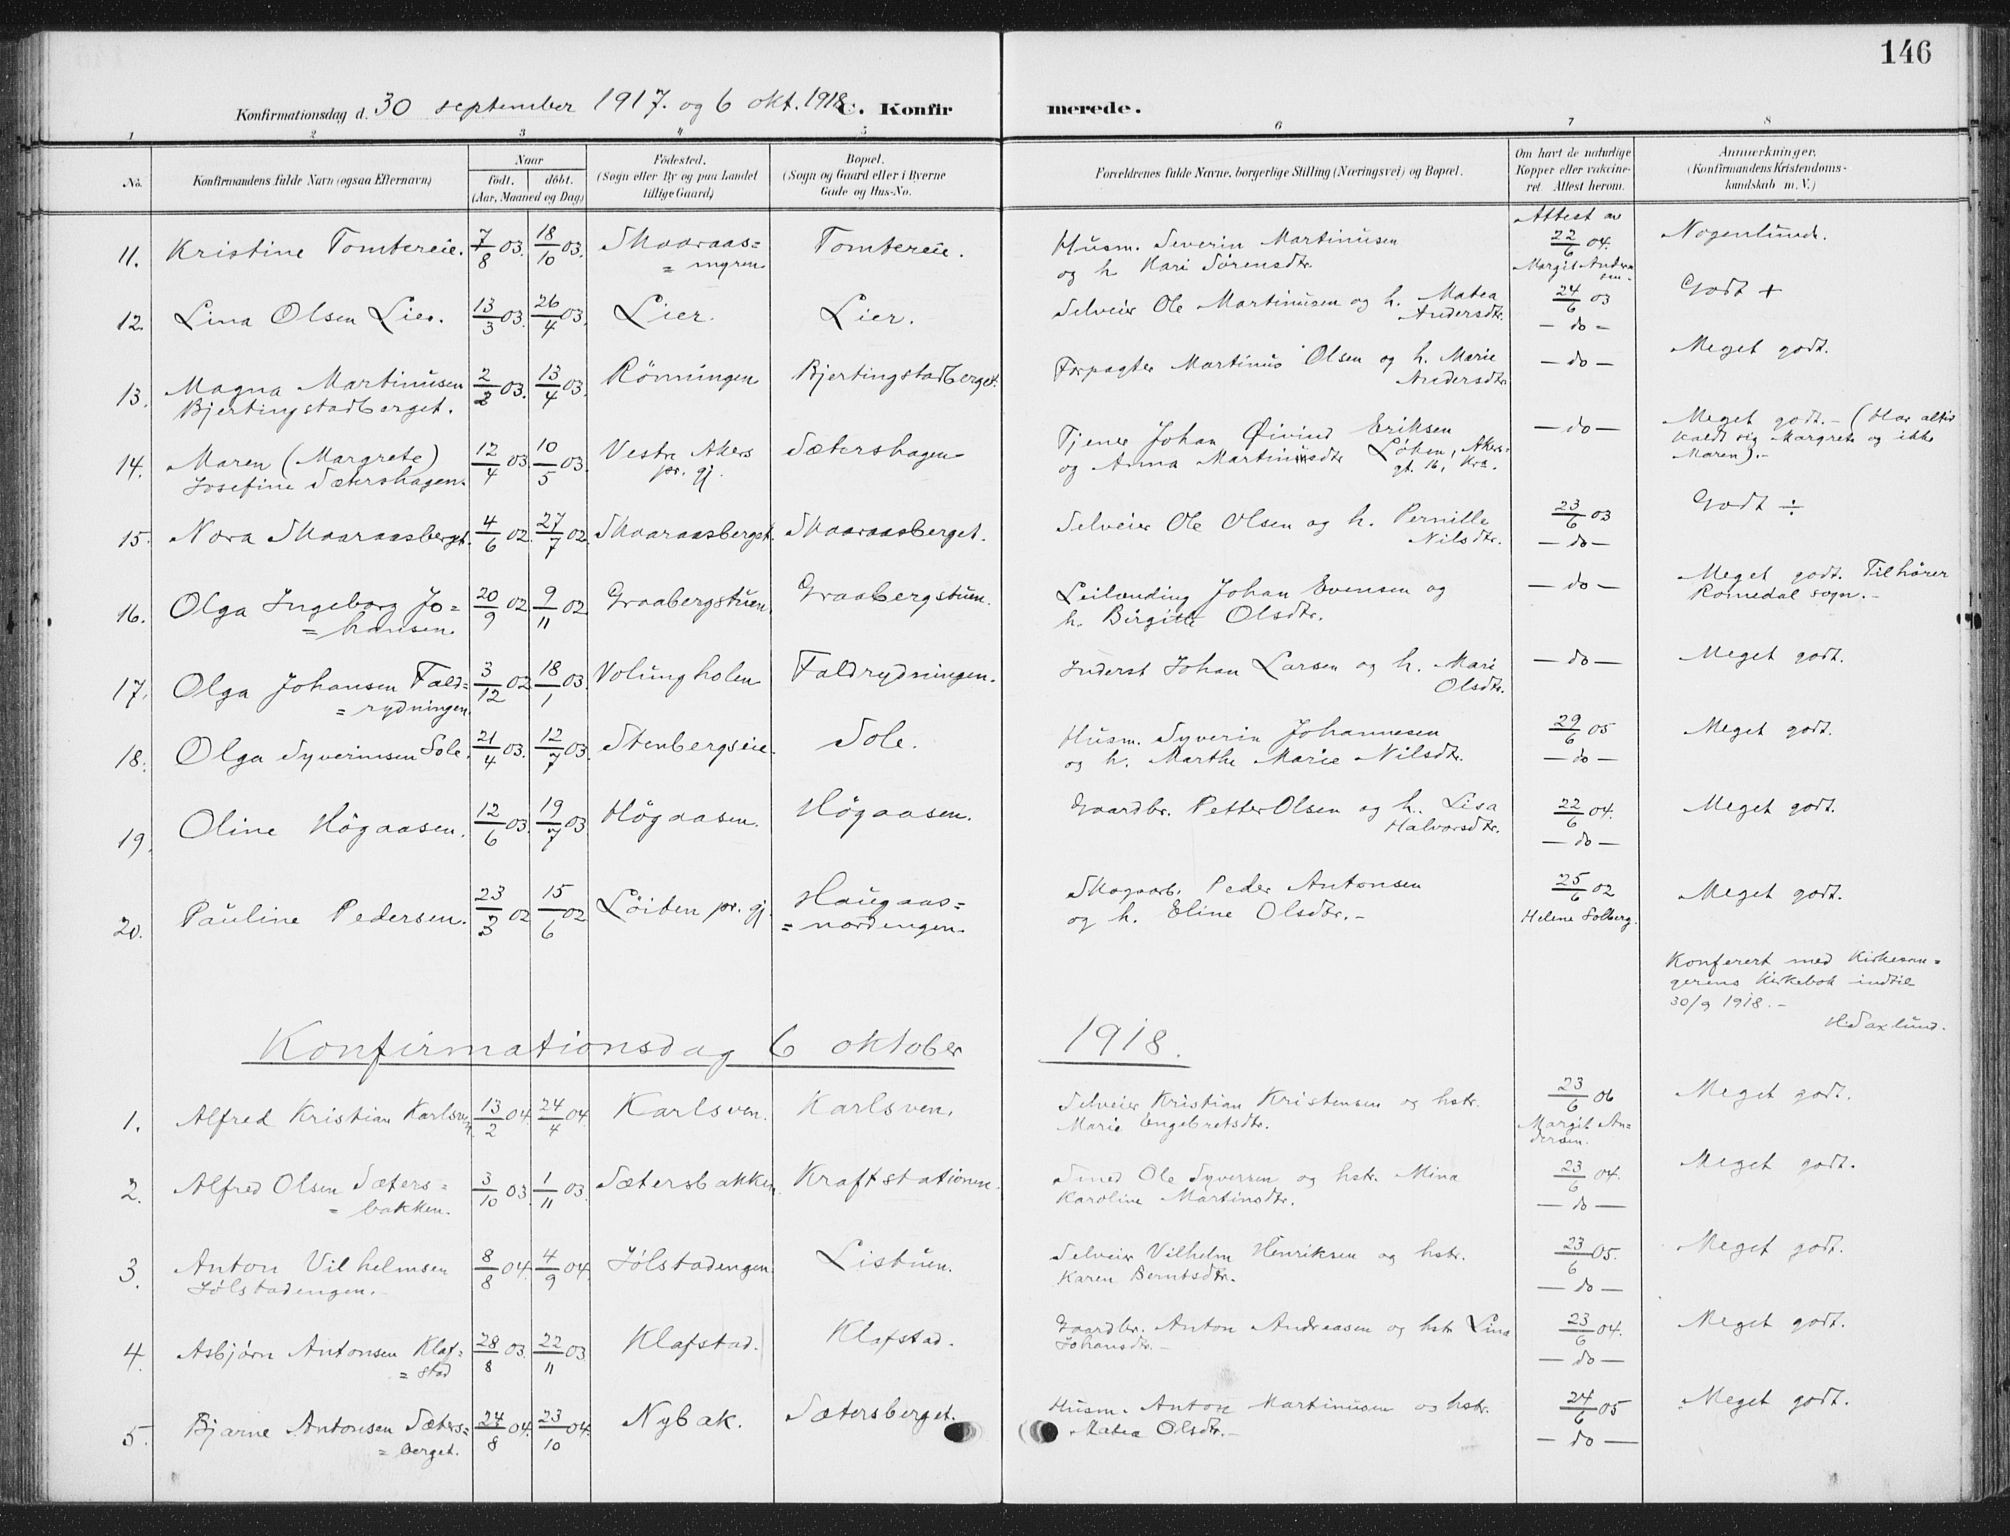 146
Konfirmationsdag d. 30 september 1917. og 6 okt. 1918 C. Konfirmerede.
1 2 3 4 5 6 7 8
No. Konfirmandens fulde Navn (ogsaa Efternavn) Naar født. døbt. (Aar, Maaned og Dag) Fødested. (Sogn eller By og paa Landet tillige Gaard) Bopæl. (Sogn og Gaard eller i Byerne Gade og Hus-No.
Forældrenes fulde Navne, borgerlige Stilling (Næringsvei) og Bopæl. Om havt de naturlige Kopper eller vakcineret Attest herom. Anmærkninger, (Konfirmandens Kristendomskundskab m. V.)
11. Kristine Tomtereie. 7/8 03. 18/10 03. Skaaraas= Tomtereie. Husm. Severin Martinusen Attest av 22/6 04. Nogenlunde.
= myren. og h. Kari Sørensdtr. Margit Andersen.
12. Lina Olsen Lier. 13/3 03. 26/4 03. Lier. Lier. Selveier Ole Martinusen og h. Matea 24/6 03 Godt +
Andersdtr. — do —
13. Magna Martinusen 2/2 03. 13/4 03. Rönningen Bjertingstadberget. Forpagter Martinus Olsen og h. Marie — do — Meget godt.
Bjertingstadberget. Andersdtr.
14. Maren (Margrete) 12/4 03. 10/5 03. Vestre Akers Sætershagen Tjener Johan Øivind Eriksen — do — Meget godt. — (Har altid
Josefine Sætershagen. pr. gj. og Anna Martinusdtr Løken, Akersgt. 16, Kra. kaldt sig Margrete og ikke
Maren). —
15. Nora Skaaraasberget. 4/6 02. 27/7 02. Skaaraasberget. Skaaraasberget. Selveier Ole Olsen og h. Pernille 23/6 03 Godt ÷
Nilsdtr. — do —
16. Olga Ingeborg Jo= 20/9 02. 9/11 02 Graabergstuen. Graabergstuen. Leilending Johan Evensen og — do — Meget godt. Tilhører
= hansen. h. Birgitte Olsdtr. Romedal sogn. —
17. Olga Johansen Fald= 3/12 02 18/1 03. Volungholen Faldrydningen. Inderst Johan Larsen og h. Mari — do — Meget godt.
= rydningen. Olsdtr.
18. Olga Syverinsen Sole. 21/4 03. 12/7 03. Stenbergseie. Sole. Husm. Syverin Johannesen 29/6 05 Meget godt.
og h. Marthe Marie Nilsdtr. — do —
19. Oline Högaasen. 12/6 03. 19/7 03. Högaasen. Högaasen. Gaardbr. Petter Olsen og h. Lisa 22/6 04. Meget godt.
Halvorsdtr. — do —
20. Pauline Pedersen. 23/3 02 15/6 02 Löiten pr. gj. Haugaas= Skogarb. Peder Antonsen 25/6 02 Meget godt.
= nordengen. og h. Eline Olsdtr. — Helene Solberg.
Konferert med Kirkesan=
gerens Kirkebok indtil
30/9 1918. —
H. Saxlund.
Konfirmationsdag 6 oktober 1918.
1. Alfred Kristian Karlsven. 13/2 04. 24/4 04. Karlsven. Karlsven. Selveier Kristian Kristensen og hstr. 23/6 06 Meget godt.
Marie Engebretsdtr. Margit Andersen.
2. Alfred Olsen Sæters= 3/10 03. 1/11 03. Sætersbakken. Kraftstationen. Smed Ole Syversen og hstr. Mina 23/6 04. Meget godt.
= bakken. Karoline Martinsdtr. — do —
3. Anton Vilhelmsen 8/8 04. 4/9 04. Jølstadengen. Listuen. Selveier Vilhelm Henriksen og hstr. 23/6 05. Meget godt.
Jølstadengen. — Karen Berntsdtr. — do —
4. Asbjørn Antonsen Klaf= 28/8 03. 22/11 03 Klafstad. Klafstad. Gaardbr. Anton Andreasen og hstr Lina 23/6 04. Meget godt.
= stad Johansdtr. — — do —
5. Bjarne Antonsen Sæters= 24/8 04. 23/10 04. Nybak. Sætersberget. Husm. Anton Martinusen og hstr. 24/6 05 Meget godt.
= berget. Matea Olsdtr. — — do —